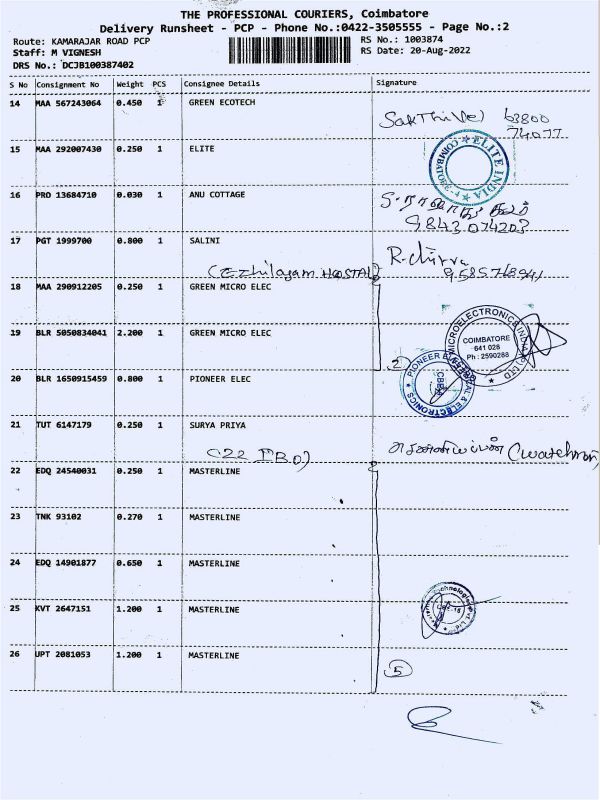 THE PROFESSIONAL COURIERS, Coimbatore
Delivery Runsheet - PCP - Phone No.:0422-3505555 - Page No.:2
Route: KAMARAJAR ROAD PCP RS No.: 1003874
Staff: M VIGNESH RS Date: 20-Aug-2022
DRS No.: DCJB100387402
S No Consignment No Weight PCS Consignee Details Signature
14 MAA 567243064 0.450 1 GREEN ECOTECH
Sakthivel 63800
74077
15 MAA 292007430 0.250 1 ELITE
ELITE INDIA COIMBATORE
16 PRO 13684710 0.030 1 ANU COTTAGE
9843074203
17 PGT 1999700 0.800 1 SALINI
(Ezhilagam HOSTAL)
18 MAA 290912205 0.250 1 GREEN MICRO ELEC
19 BLR 5050834041 2.200 1 GREEN MICRO ELEC
MICROELECTRONICS
COIMBATORE
641 028
Ph : 2590288
2
20 BLR 1650915459 0.800 1 PIONEER ELEC
PIONEER
& ELECTRONICS
21 TUT 6147179 0.250 1 SURYA PRIYA
(watchman)
22 EDQ 24540031 0.250 1 MASTERLINE
23 TNK 93102 0.270 1 MASTERLINE
24 EDQ 14901877 0.650 1 MASTERLINE
25 KVT 2647151 1.200 1 MASTERLINE
26 UPT 2081053 1.200 1 MASTERLINE
5